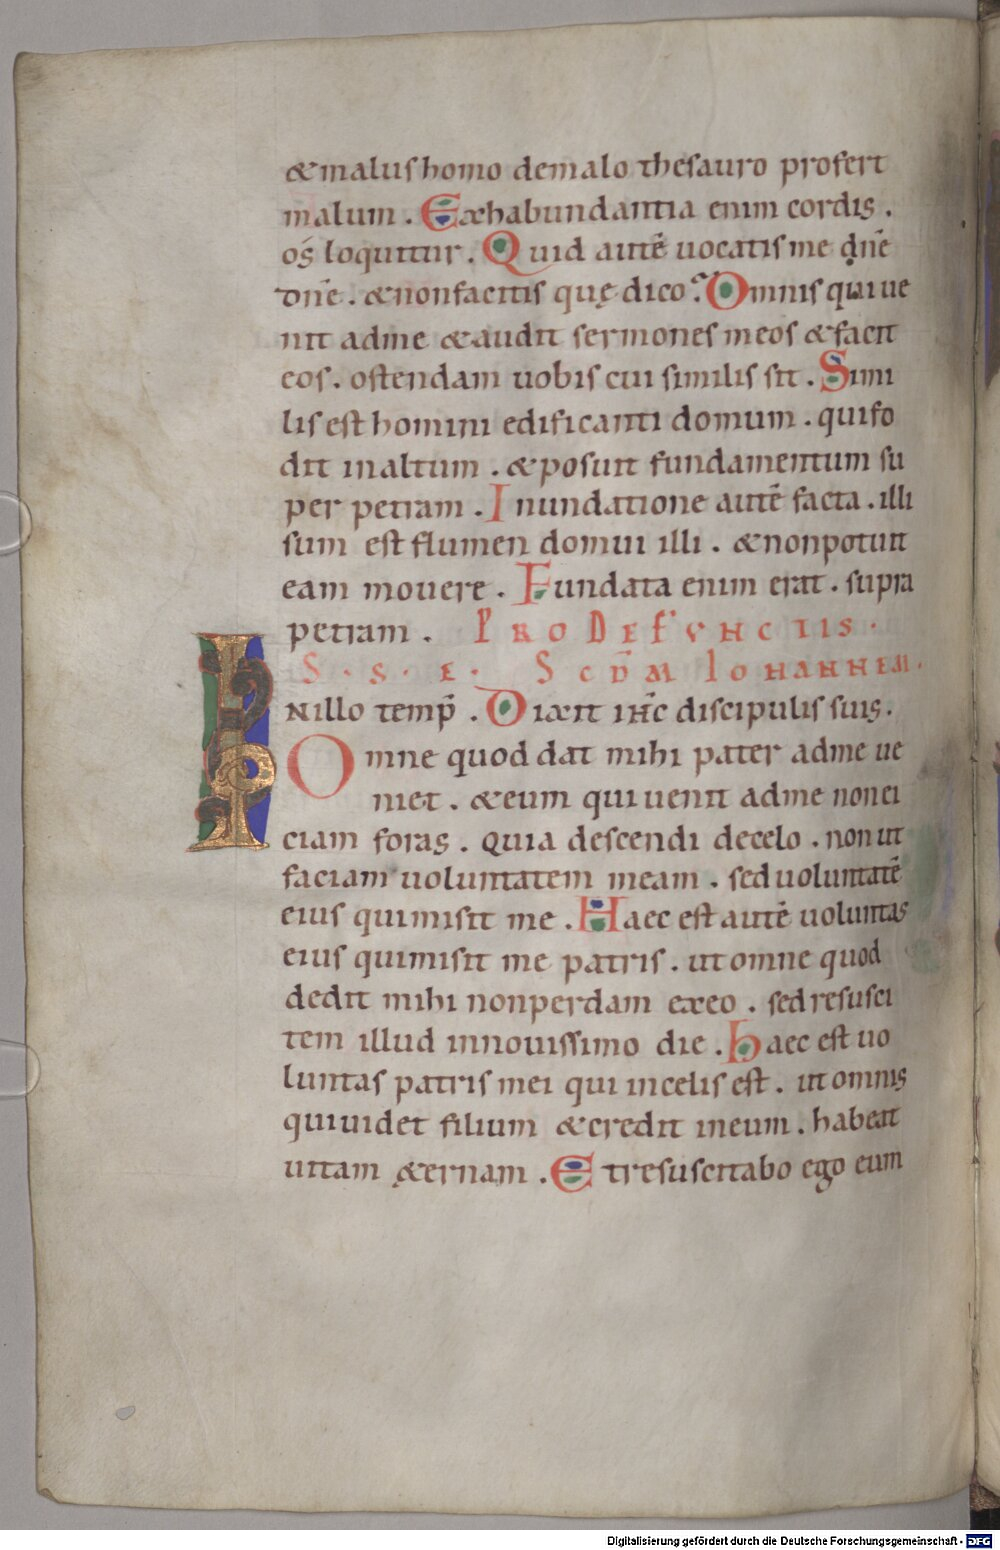 &malus homo demalo thesauro profert
malum . Exhabundantia enim cordis .
os loquitur . Quid autē uocatis me dn̄e
dn̄e . &nonfacitis quę dico? Omnis qui ue
nit adme &audit sermones meos &facit
eos . ostendam uobis cui similis sit . Simi
lis est homini edificanti domum . quifo
dit inaltum . &posuit fundamentum su
per petram . Inundatione autē facta . illi
sum est flumen domui illi . &nonpotuit
eam mouere . Fundata enim erat . supra
petram . PRO DEFUNCTIS .
S . S . E . SCD̄M IOHANNEM .
INillo temp̄ . Dixit IHC̄ discipulis suis .
Omne quod dat mihi pater adme ue
niet . &eum qui uenit adme non ei
ciam foras . quia descendi decelo . non ut
faciam uoluntatem meam . sed uoluntatē
eius quimisit me . Haec est autē uoluntas
eius quimisit me patris . ut omne quod
dedit mihi nonperdam exeo . sed resusci
tem illud innouissimo die . haec est uo
luntas patris mei qui incelis est . ut omnis
quiuidet filium &credit ineum . habeat
uitam &ernam . Et resuscitabo ego eum
Digitalisierung gefördert durch die Deutsche Forschungsgemeinschaft - DFG